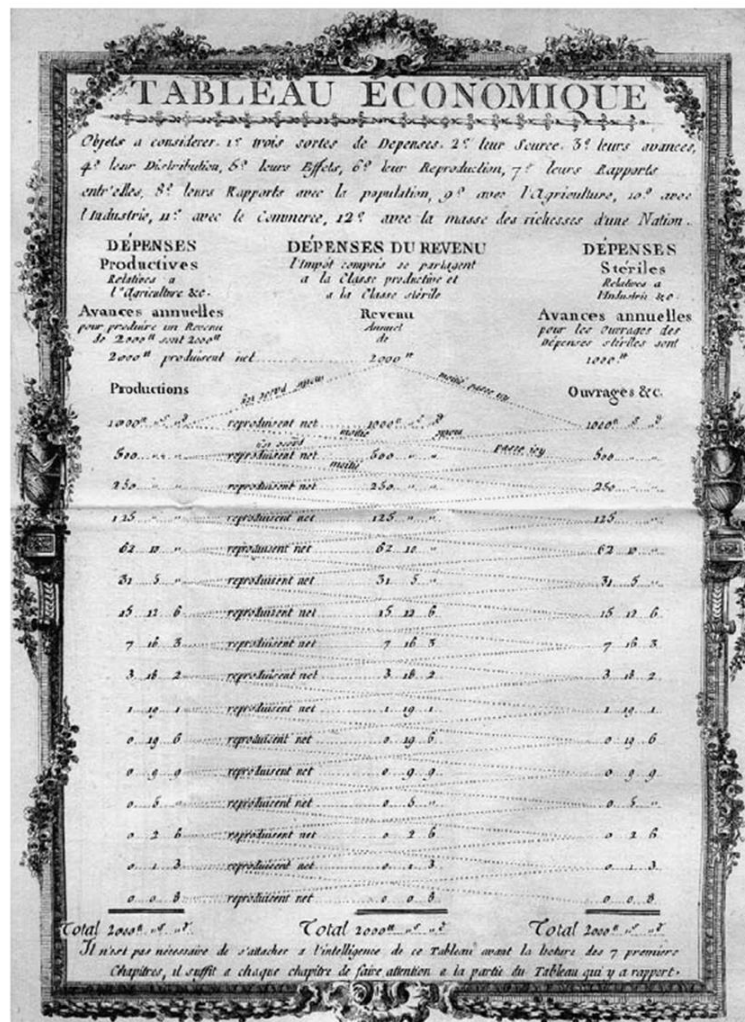 TABLEAU ECONOMIQUE
Objets a considerer. 1º trois sortes de Depenses. 2º leur Source. 3º leurs avances,
4º leur Distribution, 5º leurs Effets, 6º leur Reproduction, 7º leurs Rapports
entr'elles, 8º leurs Rapports avec la population, 9º avec l'Agriculture, 10º avec
l'Industrie, 11º avec le Commerce, 12º avec la masse des richesses d'une Nation.
DÉPENSES
Productives
Relatives a
l'Agriculture &c.
DÉPENSES DU REVENU
l'Impôt compris se partagent
a la Classe productive et
a la Classe stérile
DÉPENSES
Stériles
Relatives a
l'Industrie &c.
Avances annuelles
pour produire un Revenu
de 2000ᵗᵗ sont 2000ᵗᵗ
Revenu
Annuel
de
Avances annuelles
pour les Ouvrages des
Dépenses stériles sont
2000ᵗᵗ produisent net 2000ᵗᵗ 1000ᵗᵗ
Productions Ouvrages &c.
moitié passe icy
1000ᵗᵗ reproduisent net 1000ᵗᵗ 1000ᵗᵗ
moitié
passe icy
500 reproduisent net 500 500
moitié
250 reproduisent net 250 250
125 reproduisent net 125 125
62 10 reproduisent net 62 10 62 10
31 5 reproduisent net 31 5 31 5
15 12 6 reproduisent net 15 12 6 15 12 6
7 16 3 reproduisent net 7 16 3 7 16 3
3 18 2 reproduisent net 3 18 2 3 18 2
1 19 1 reproduisent net 1 19 1 1 19 1
0 19 6 reproduisent net 0 19 6 0 19 6
0 9 9 reproduisent net 0 9 9 0 9 9
0 5 reproduisent net 0 5 0 5
0 2 6 reproduisent net 0 2 6 0 2 6
0 1 3 reproduisent net 0 1 3 0 1 3
0 0 8 reproduisent net 0 0 8 0 0 8
Total 2000ᵗᵗ Total 2000ᵗᵗ Total 2000ᵗᵗ
Il n'est pas nécessaire de s'attacher a l'intelligence de ce Tableau avant la lecture des 7 premiers
Chapitres, il suffit a chaque chapitre de faire attention a la partie du Tableau qui y a rapport.